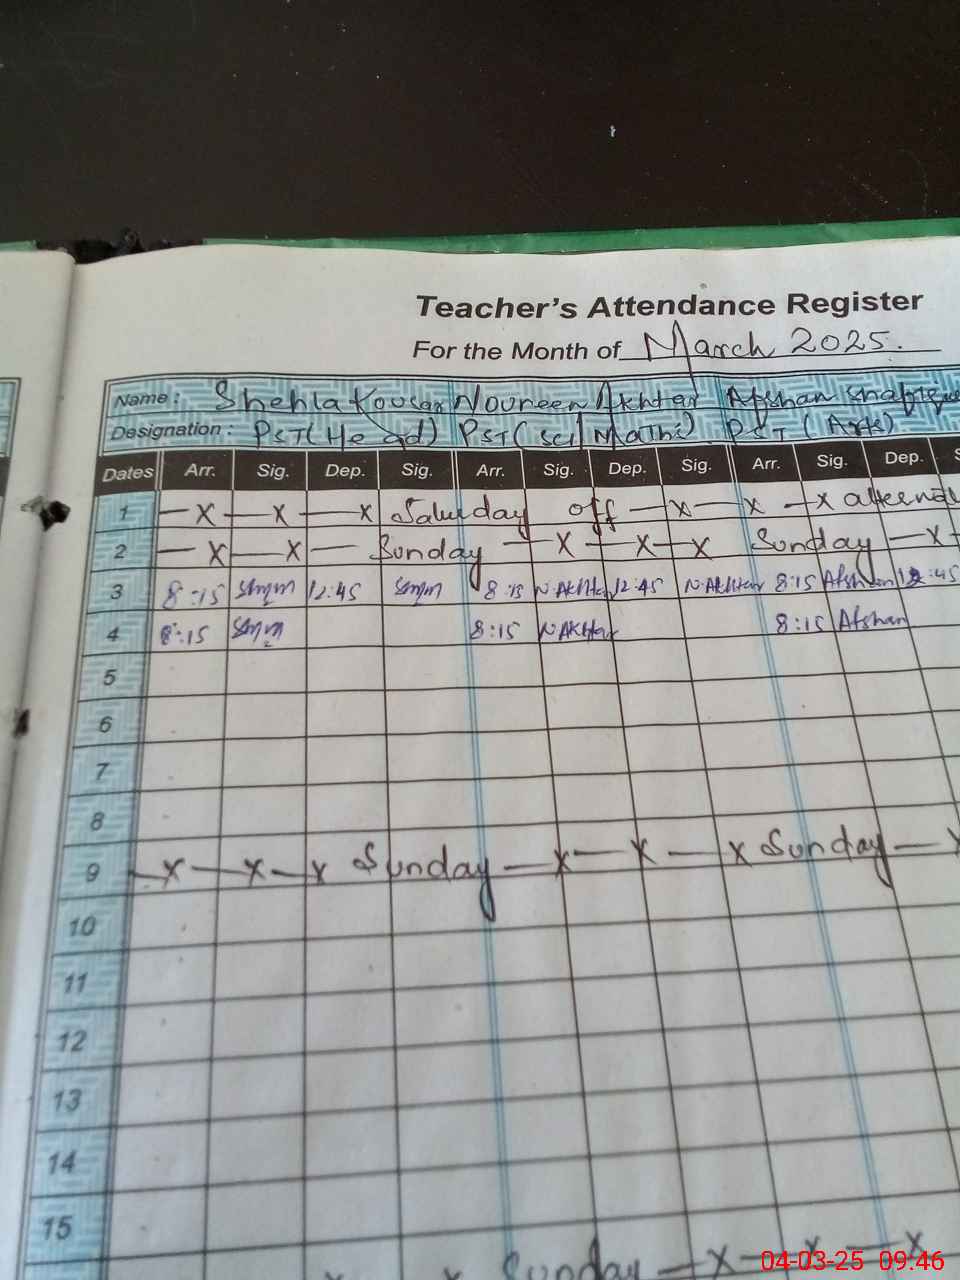 Teacher's Attendance Register
For the Month of March 2025.
Name: Shehla Kousar Noureen Akhtar Afshan
Designation: PST (Head) PST (Sci/Math) PST (Arts)
Dates Arr. Sig. Dep. Sig. Arr. Sig. Dep. Sig. Arr. Sig. Dep. S
1 — x — x — x Saturday off — x — x — x
2 — x — x — Sunday — x — x — x Sunday — x
3 8:15 12:45 8:15 N.Akhtar 12:45 N.Akhtar 8:15 Afshan 12:45
4 8:15 8:15 N.Akhtar 8:15 Afshan
5
6
7
8
9 — x — x — x Sunday — x — x — x Sunday — x
10
11
12
13
14
15
Sunday — x — x — x
04-03-25 09:46